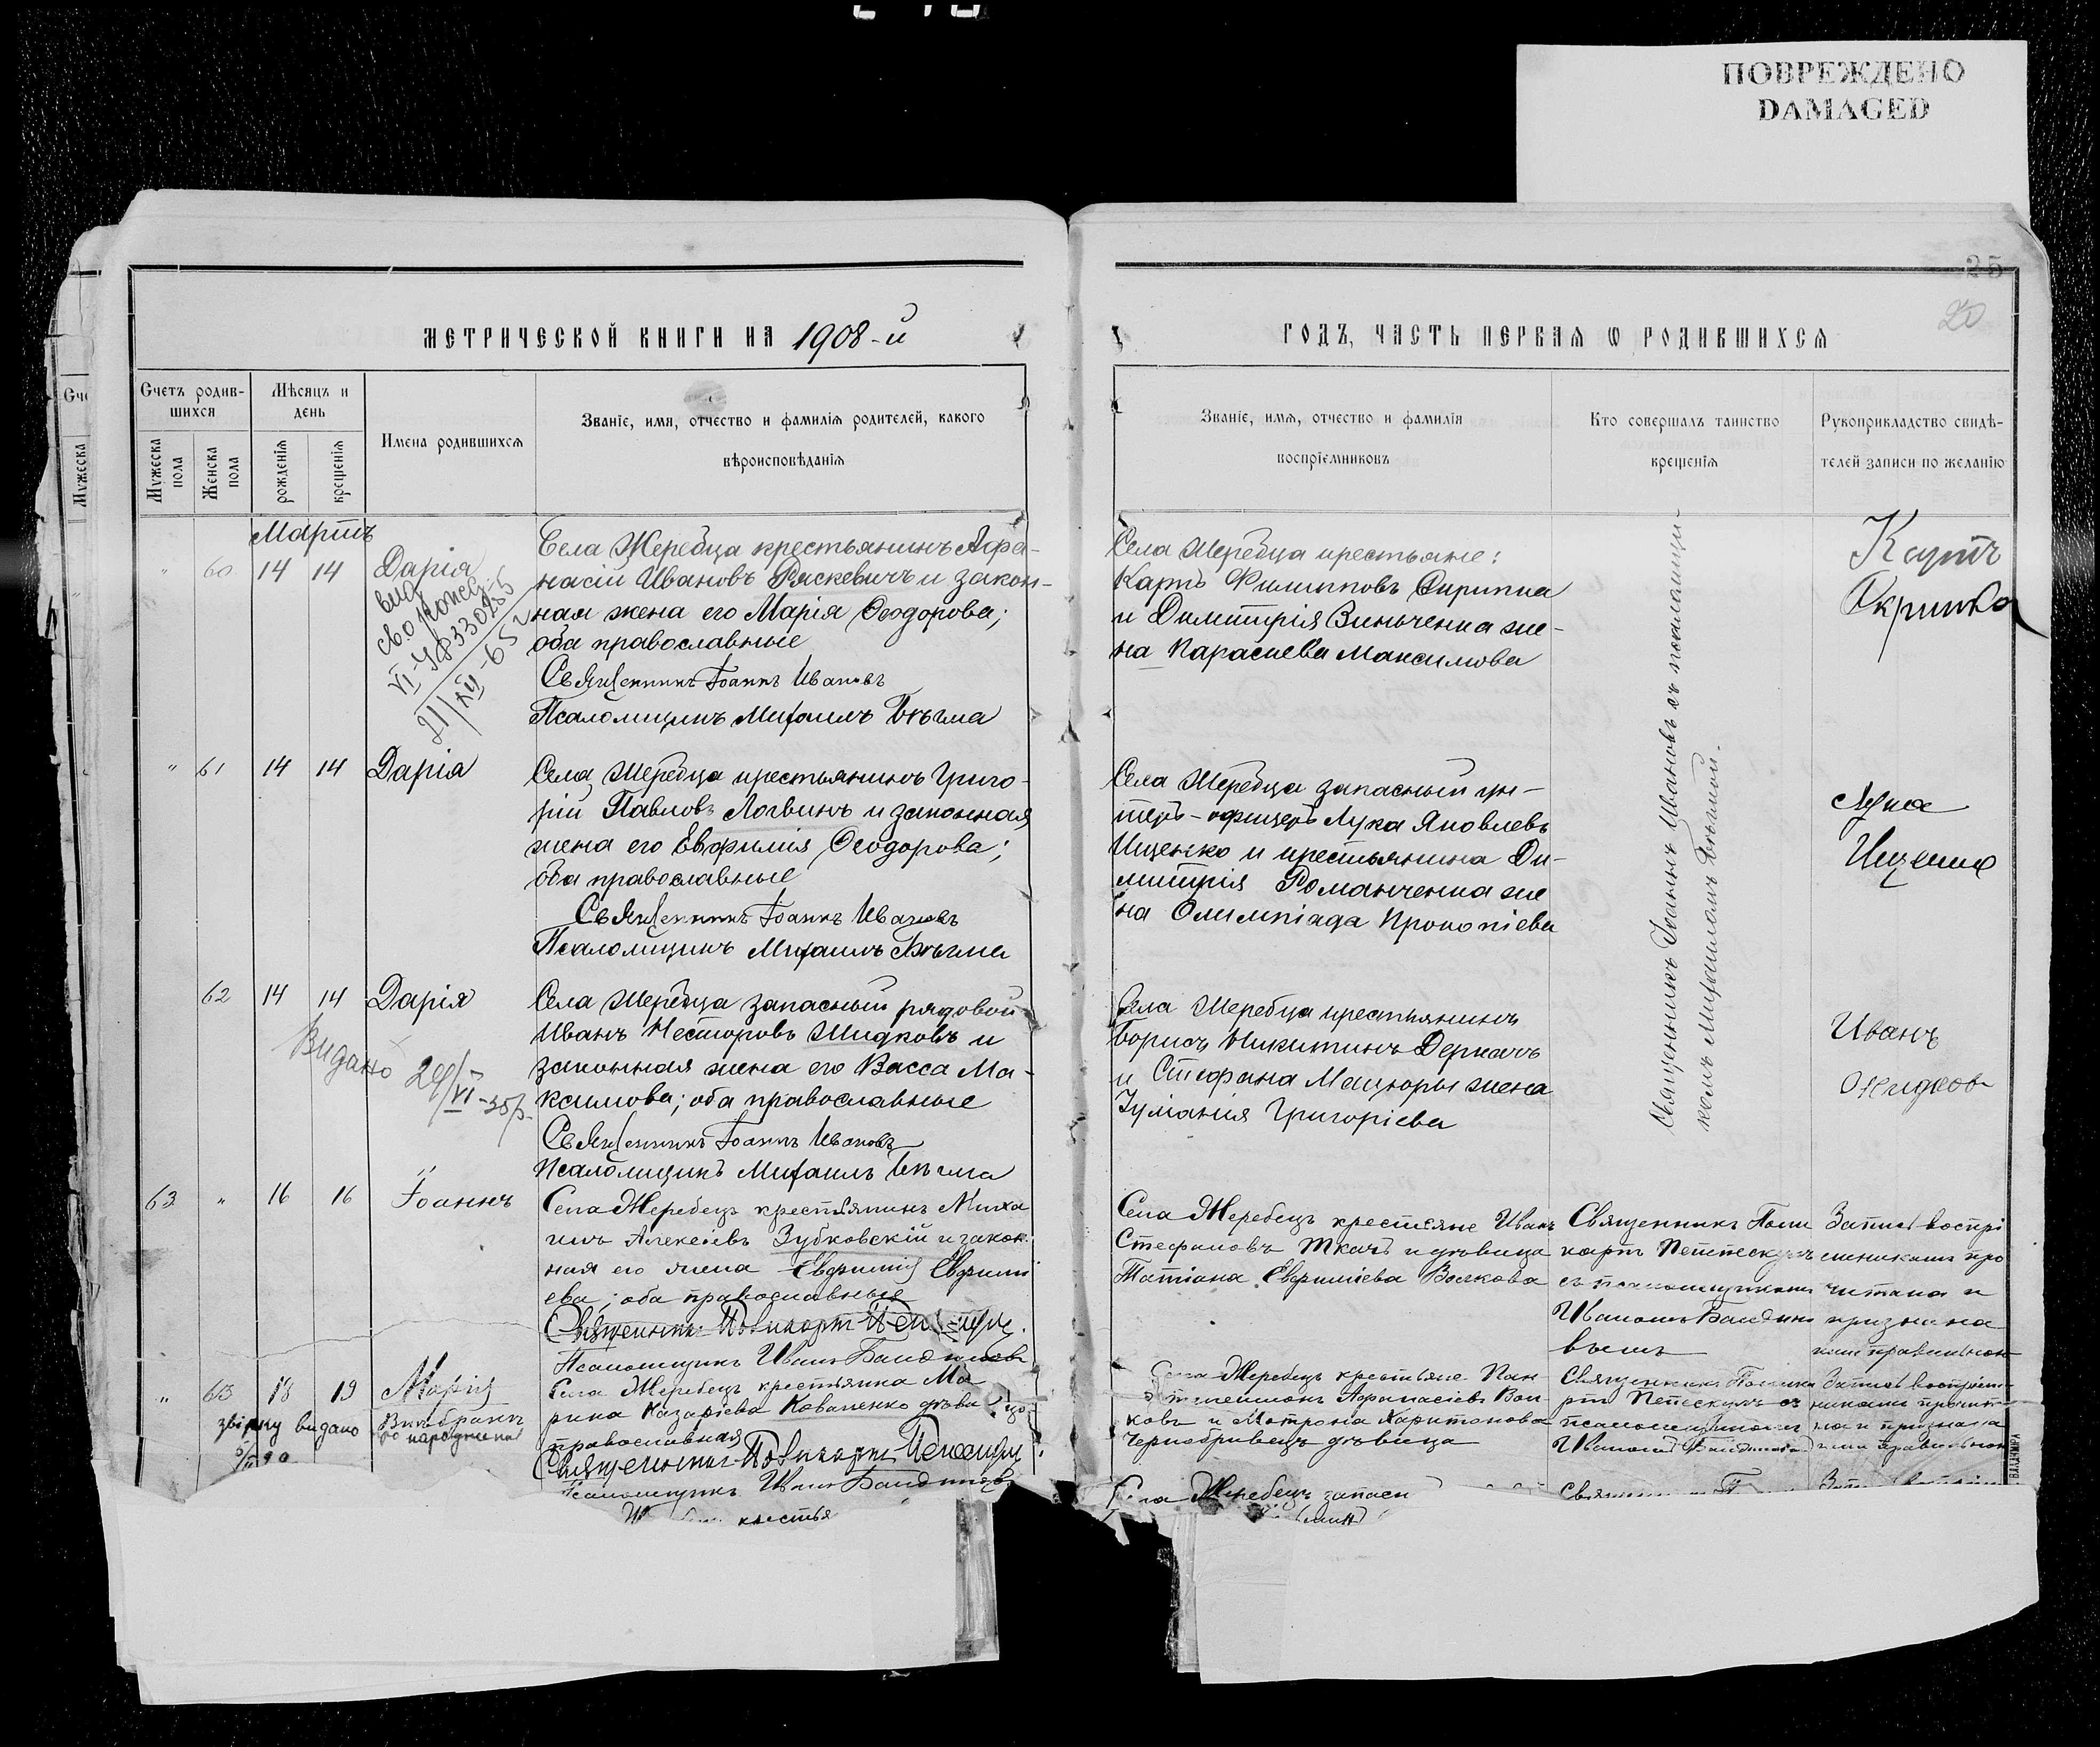 ПОВРЕЖДЕНО
DAMAGED
25
20
МЕТРИЧЕСКОЙ КНИГИ НА 1908-й
ГОДЪ, ЧАСТЬ ПЕРВАЯ Ѡ РОДИВШИХСЯ
Счетъ родив-
шихся
Мужеска
пола
Женска
пола
Мѣсяцъ и
день
рожденія
крещенія
Имена родившихся
Званіе, имя, отчество и фамилія родителей, какого
вѣроисповѣданія
Званіе, имя, отчество и фамилія
воспріемниковъ
Кто совершалъ таинство
крещенія
Рукоприкладство свидѣ-
телей записи по желанію
Мартъ
" 60 14 14 Дарія
Села Жеребца крестьянинъ Афа-
насій Ивановъ Ряскевичъ и закон-
ная жена его Марія Ѳеодорова;
оба православные
Священникъ Іоаннъ Ивановъ
Псаломщикъ Михаилъ
Села Жеребца крестьяне:
Карпъ Филипповъ Скрипка
и Димитрія Зинченка же-
на Параскева Максимова
Карпъ
Скрипка
Священникъ Іоаннъ Ивановъ съ псаломщи-
комъ Михаиломъ
" 61 14 14 Дарія
Села Жеребца крестьянинъ Григо-
рій Павловъ Логвинъ и законная
жена его Евфимія Ѳеодорова;
оба православные
Священникъ Іоаннъ Ивановъ
Псаломщикъ Михаилъ
Села Жеребца запасный ун-
теръ-офицеръ Лука Яковлевъ
Ищенко и крестьянина Ди-
митрія Романченка же
на Олимпіада Прокопіева
Лука
Ищенко
62 14 14 Дарія
Видано
Села Жеребца запасный рядовой
Иванъ Несторовъ Жидковъ и
законная жена его Васса Ма-
ксимова; оба православные
Священникъ Іоаннъ Ивановъ
Псаломщикъ Михаилъ
Села Жеребца крестьянинъ
Борисъ Никитинъ Деркачъ
и Стефана Мацюры жена
Іуліанія Григоріева
Иванъ
Жидков
63 " 16 16 Іоаннъ
Села Жеребецъ крестьянинъ Миха
илъ Алексіевъ Зубковскій и закон
ная его жена Евфимія Евфими
ева; оба православные
Священникъ Поликарпъ
Псаломщикъ Иванъ
Села Жеребецъ крестьяне Иванъ
Стефановъ Ткачъ и дѣвица
Татіана Евфиміева Волкова
Священникъ Поли
карпъ
съ псаломщикомъ
Иваномъ
Запись воспрі
емниками про
читана и
признана
ими правильной
" 63 18 19 Марія
звірку видано
Села Жеребецъ крестьянка Ма
рина Назаріева Коваленко дѣви ца
православная
Священникъ Поликарпъ
Псаломщикъ Иванъ
Села Жеребецъ крестьяне Пан-
телеимонъ Афанасіевъ Вол-
ковъ и Матрона Харитонова
Чернобривецъ дѣвица
Села Жеребецъ